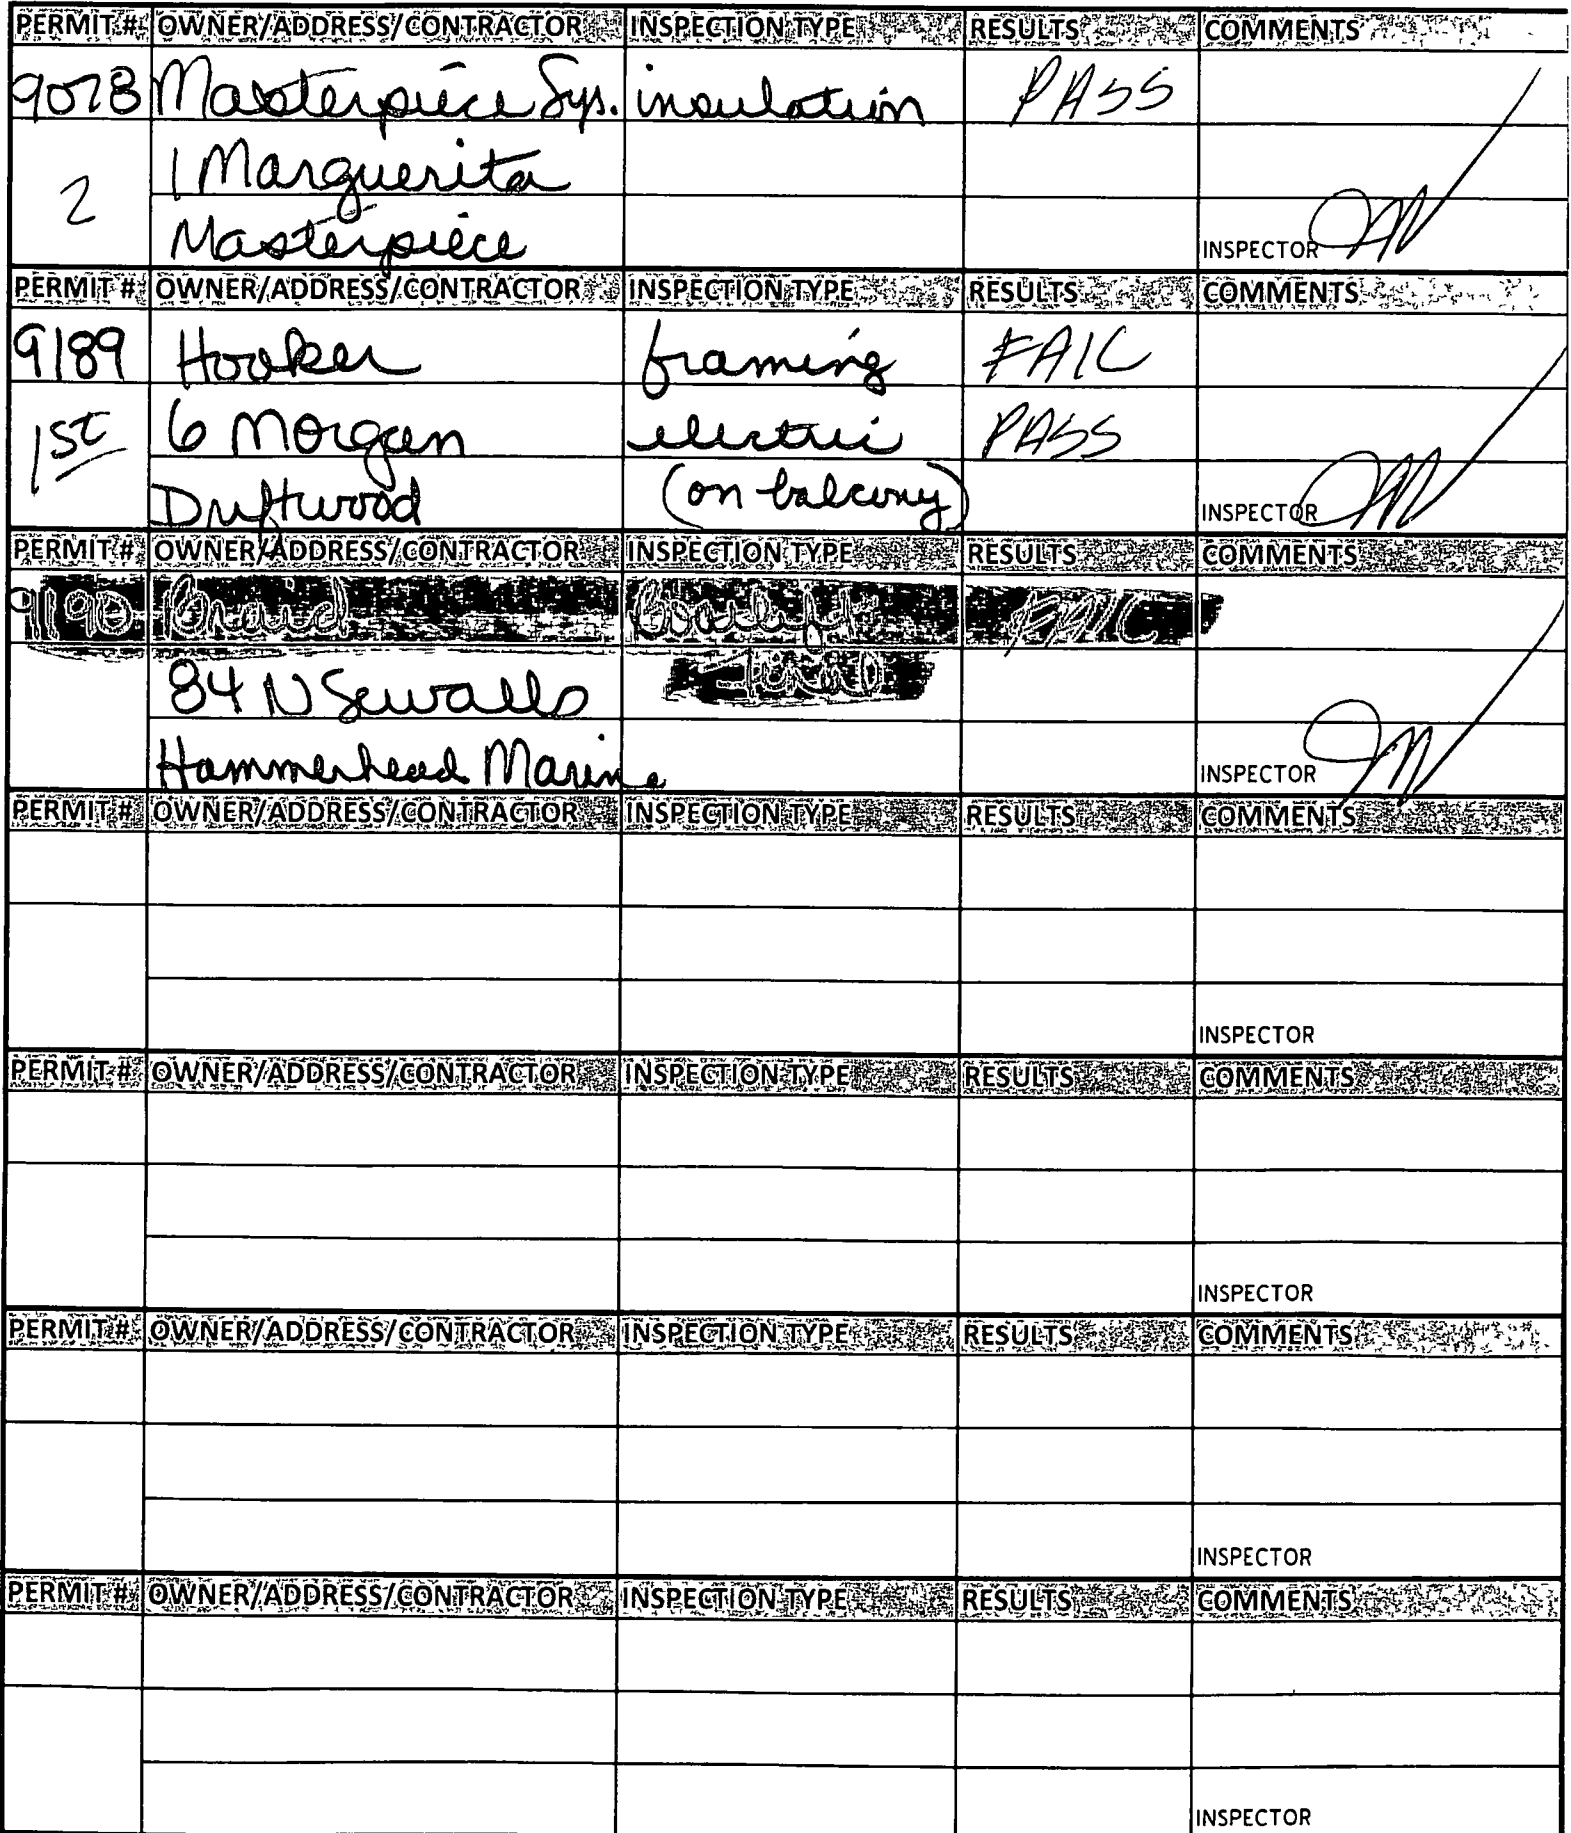 PERMIT # OWNER/ADDRESS/CONTRACTOR INSPECTION TYPE RESULTS COMMENTS
9078 Masterpiece Sys. insulation PASS
1 Marguerita
2
Masterpiece
INSPECTOR
PERMIT # OWNER/ADDRESS/CONTRACTOR INSPECTION TYPE RESULTS COMMENTS
9189 Hooker framing FAIL
1ST 6 Morgan electric PASS
Driftwood (on balcony)
INSPECTOR
PERMIT # OWNER/ADDRESS/CONTRACTOR INSPECTION TYPE RESULTS COMMENTS
9190 Braid Boatlift FAIL
84 N Sewalls
Hammerhead Marine
INSPECTOR
PERMIT # OWNER/ADDRESS/CONTRACTOR INSPECTION TYPE RESULTS COMMENTS
INSPECTOR
PERMIT # OWNER/ADDRESS/CONTRACTOR INSPECTION TYPE RESULTS COMMENTS
INSPECTOR
PERMIT # OWNER/ADDRESS/CONTRACTOR INSPECTION TYPE RESULTS COMMENTS
INSPECTOR
PERMIT # OWNER/ADDRESS/CONTRACTOR INSPECTION TYPE RESULTS COMMENTS
INSPECTOR